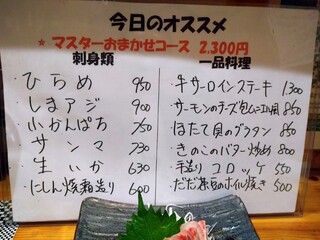 今日のオススメ
★ マスターおまかせコース 2,300円
刺身類
・ひらめ 950
・しまアジ 900
・小かんぱち 750
・サンマ 730
・生いか 630
・にしん焼霜造り 600
一品料理
・牛サーロインステーキ 1300
・サーモンのチーズ包みムニエル風 850
・ほたて貝のグラタン 850
・きのこのバター炒め 800
・手造りコロッケ 550
・だだ茶豆のホイル焼き 500